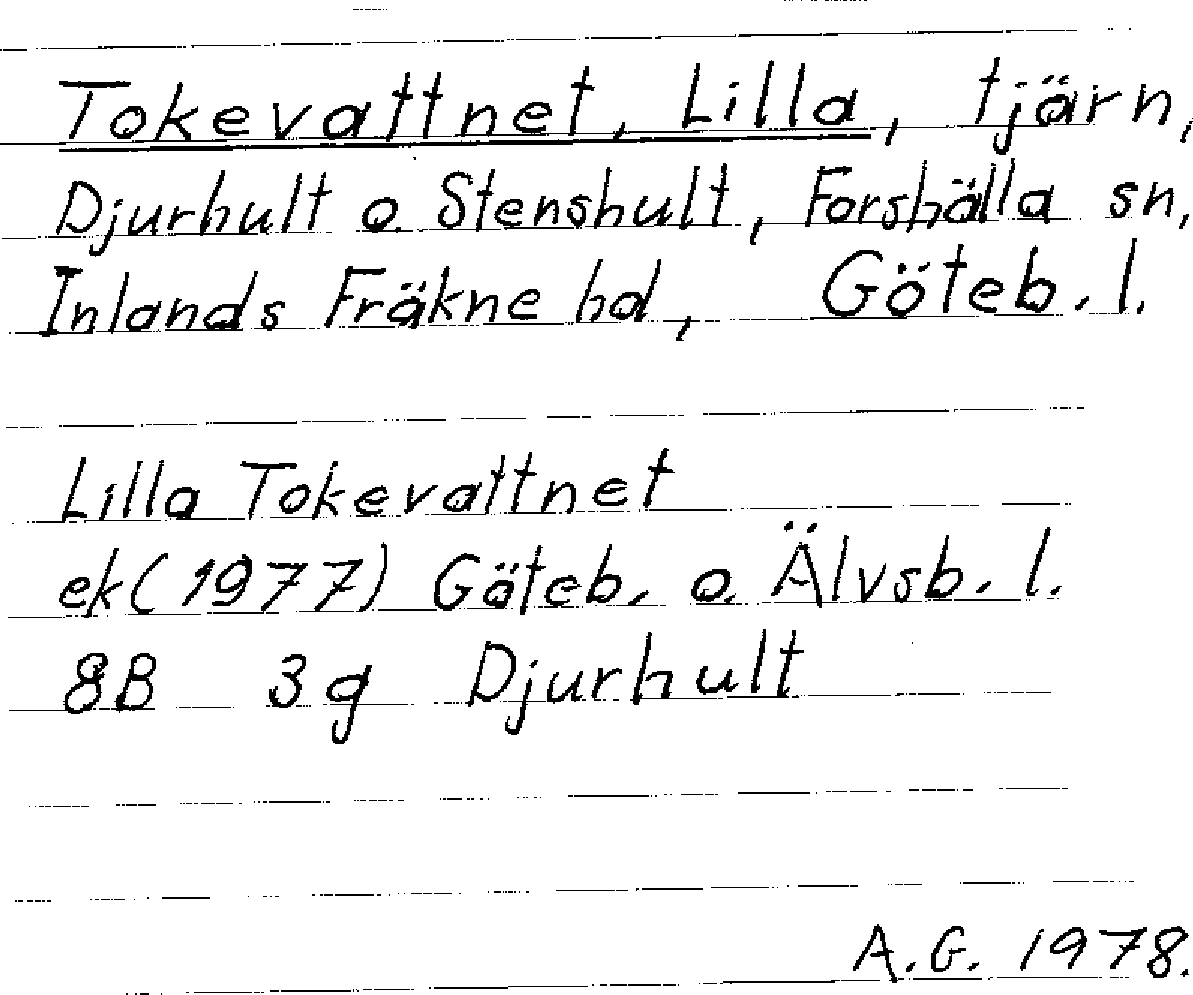 Tokevattnet, Lilla, tjärn,
Djurhult o. Stenshult, Forshälla sn,
Inlands Fräkne hd, Göteb. l.
Lilla Tokevattnet
ek (1977) Göteb. o. Älvsb. l.
8B 3g Djurhult
A.G. 1978.